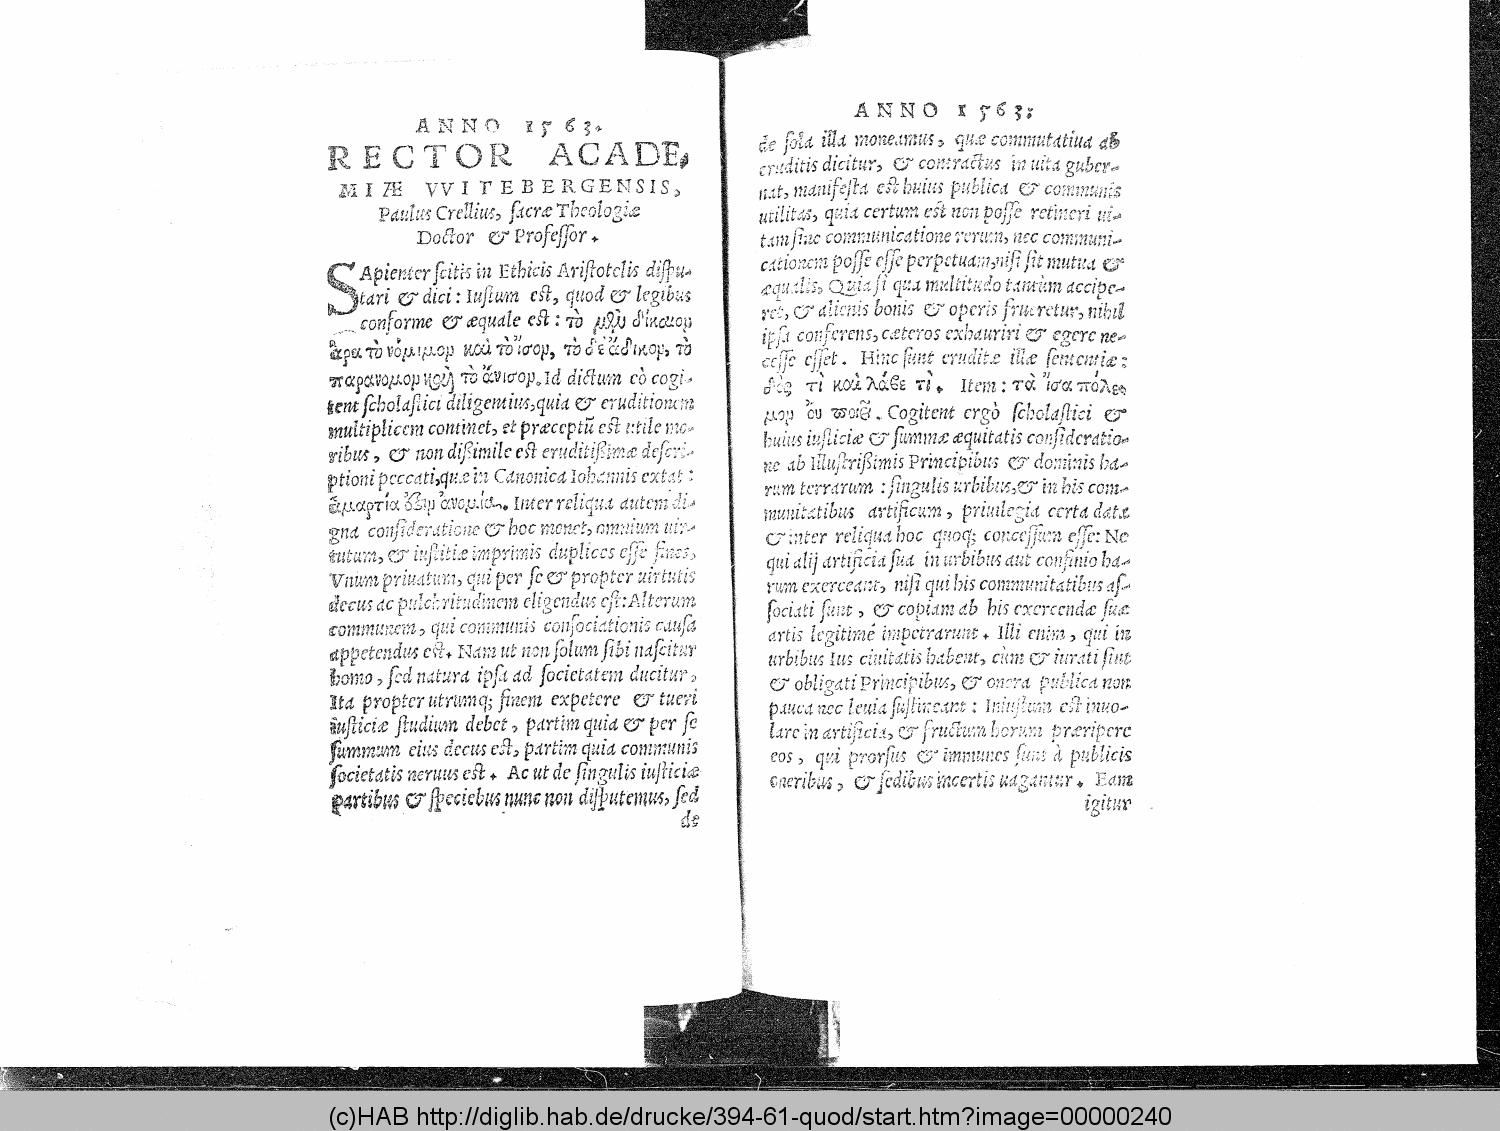 ANNO 1563.
RECTOR ACADE,
MIÆ VVITEBERGENSIS,
Paulus Crellius, sacræ Theologiæ
Doctor & Professor.
SApienter scitis in Ethicis Aristotelis dispu-
tari & dici: Iustum est, quod & legibus
conforme & æquale est: τὸ μὲν δίκαιον
ἄρα τὸ νόμιμον καὶ τὸ ἴσον, τὸ δὲ ἄδικον, τὸ
παράνομον καὶ τὸ ἄνισον. Id dictum eò cogi-
tent scholastici diligentius, quia & eruditionem
multiplicem continet, et præceptũ est utile mo-
ribus, & non dißimile est eruditißimæ descri-
ptioni peccati, quæ in Canonica Iohannis extat:
ἁμαρτία ἐστὶν ἀνομία. Inter reliqua autem di-
gna consideratione & hoc monet, omnium uir-
tutum, & iustitiæ imprimis duplices esse fines,
Vnum priuatum, qui per se & propter uirtutis
decus ac pulchritudinem eligendus est: Alterum
communem, qui communis consociationis causa
appetendus est. Nam ut non solum sibi nascitur
homo, sed natura ipsa ad societatem ducitur,
Ita propter utrumq; finem expetere & tueri
iusticiæ studium debet, partim quia & per se
summum eius decus est, partim quia communis
societatis neruus est. Ac ut de singulis iusticiæ
partibus & speciebus nunc non disputemus, sed
de
ANNO 1563.
de sola illa moneamus, quæ commutatiua ab
eruditis dicitur, & contractus in uita guber-
nat, manifesta est huius publica & communis
utilitas, quia certum est non posse retineri ui-
tam sine communicatione rerum, nec communi-
cationem posse esse perpetuam, nisi sit mutua &
æqualis, Quia si qua multitudo tantùm accipe-
ret, & alienis bonis & operis frueretur, nihil
ipsa conferens, cæteros exhauriri & egere ne-
cesse esset. Hinc sunt eruditæ illæ sententiæ:
δός τὶ καὶ λάβε τὶ. Item: τὰ ἴσα πόλε-
μον οὐ ποιεῖ. Cogitent ergò scholastici &
huius iusticiæ & summæ æquitatis consideratio-
ne ab Illustrißimis Principibus & dominis ha-
rum terrarum: singulis urbibus, & in his com-
munitatibus artificum, priuilegia certa data
& inter reliqua hoc quoq; concessum esse: Ne
qui alij artificia sua in urbibus aut confinio ha-
rum exerceant, nisi qui his communitatibus as-
sociati sunt, & copiam ab his exercendæ suæ
artis legitimè impetrarunt. Illi enim, qui in
urbibus Ius ciuitatis habent, cùm & iurati sint
& obligati Principibus, & onera publica non
pauca nec leuia sustineant: Iniustum est inuo-
lare in artificia, & fructum horum præripere
eos, qui prorsus & immunes sunt à publicis
oneribus, & sedibus incertis uagantur. Eam
igitur
(c)HAB http://diglib.hab.de/drucke/394-61-quod/start.htm?image=00000240